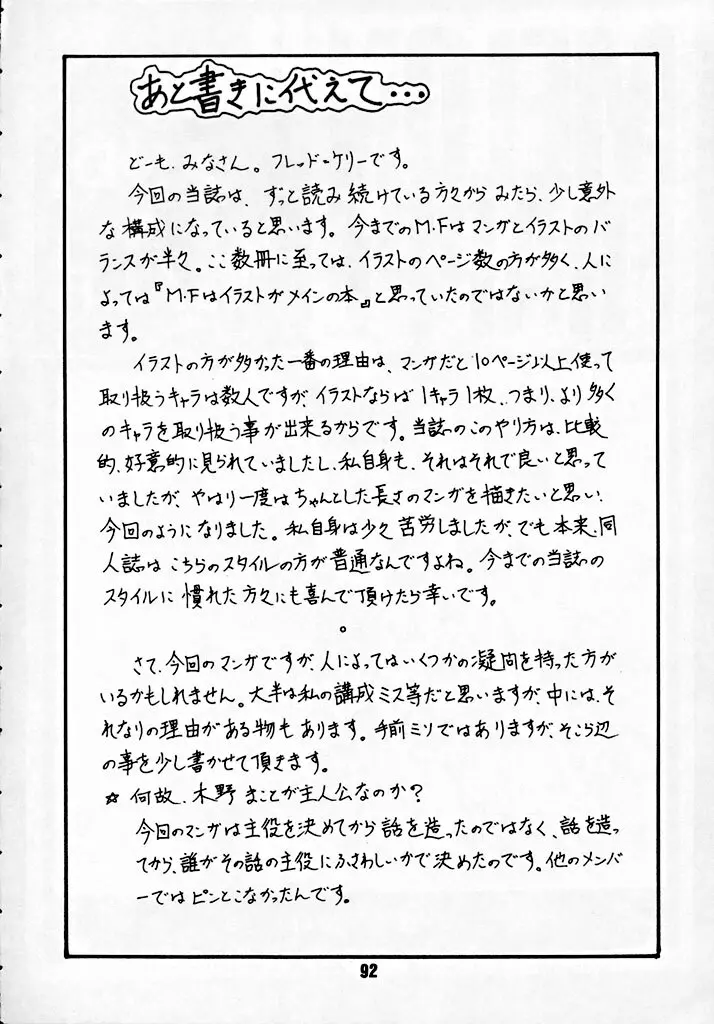 あと書きに代えて…
どーも、みなさん。フレッド・ケリーです。
今回の当誌は、ずっと読み続けている方々からみたら、少し意外
な構成になっていると思います。今までのM.Fはマンガとイラストのバ
ランスが半々。ここ数冊に至っては、イラストのページ数の方が多く、人に
よっては『M.Fはイラストがメインの本』と思っていたのではないかと思い
ます。
イラストの方が多かった一番の理由は、マンガだと10ページ以上使って
取り扱うキャラは数人ですが、イラストならば1キャラ1枚、つまり、より多く
のキャラを取り扱う事が出来るからです。当誌のこのやり方は、比較
的、好意的に見られていましたし、私自身も、それはそれで良いと思って
いましたが、やはり一度はちゃんとした長さのマンガを描きたいと思い、
今回のようになりました。私自身は少々苦労しましたが、でも本来、同
人誌はこちらのスタイルの方が普通なんですよね。今までの当誌の
スタイルに慣れた方々にも喜んで頂けたら幸いです。
。
さて、今回のマンガですが、人によってはいくつかの凝問を持った方が
いるかもしれません。大半は私の講成ミス等だと思いますが、中には、そ
れなりの理由がある物もあります。手前ミソではありますが、そこら辺
の事を少し書かせて頂きます。
☆何故、木野まことが主人公なのか?
今回のマンガは主役を決めてから話を造ったのではなく、話を造っ
てから、誰がその話の主役にふさわしいかで決めたのです。他のメンバ
ーではピンとこなかったんです。
92